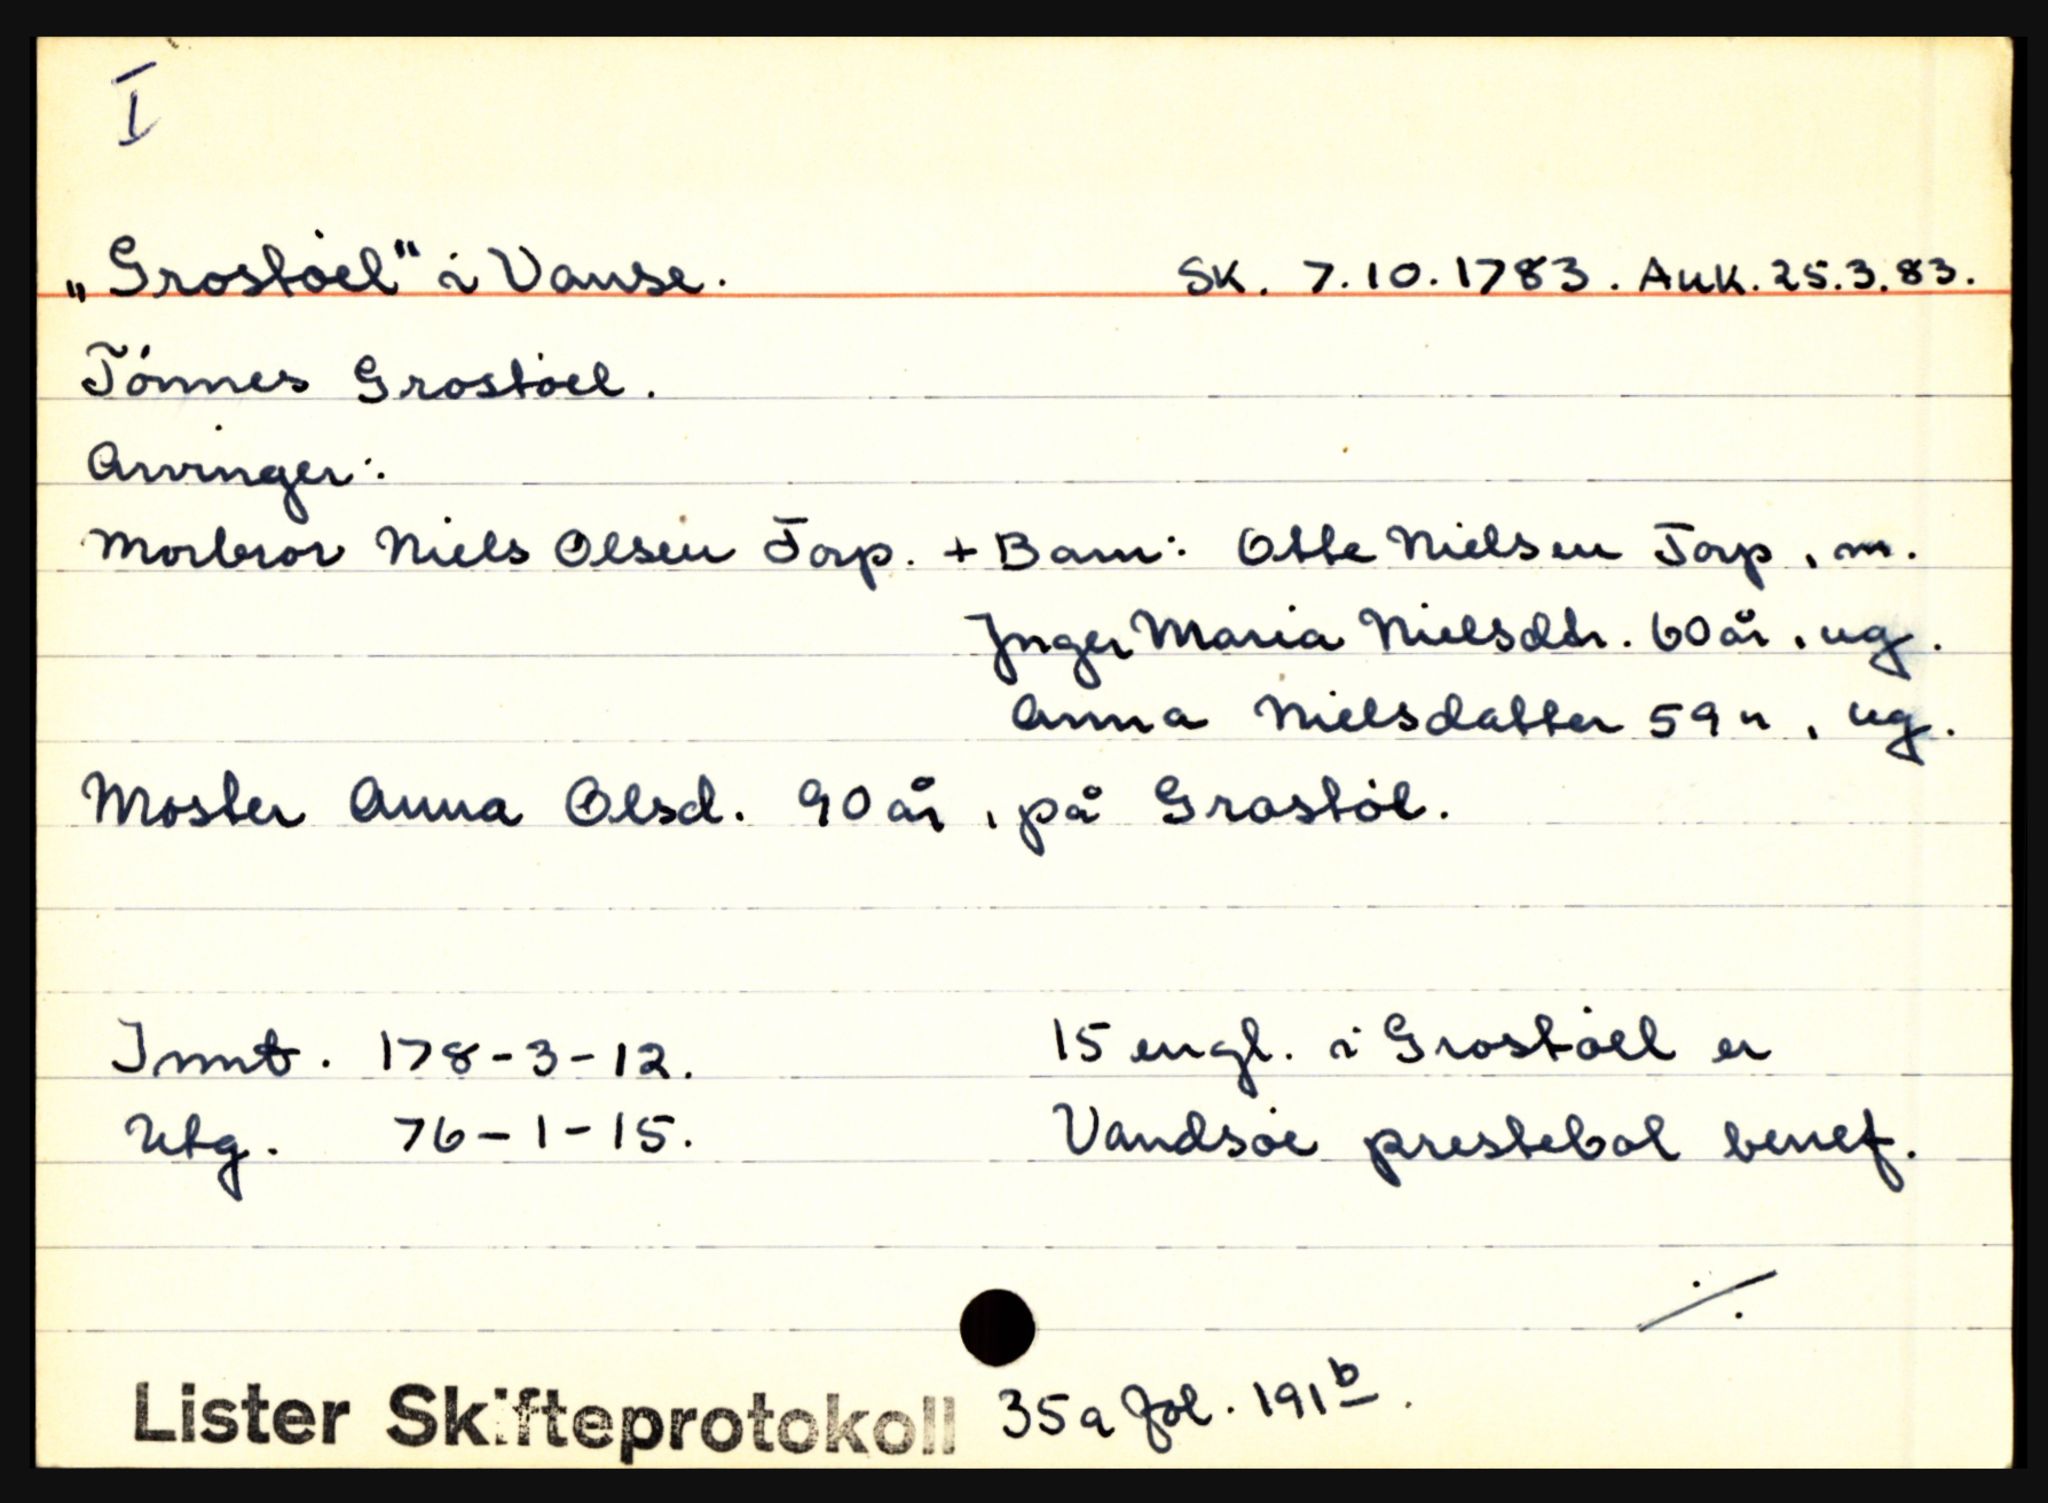 I
„Grostøel" i Vanse. Sk. 7.10.1783. Auk. 25.3.83.
Tönnes Grostøel.
Arvinger:
Morbror Niels Olsen Torp. + Barn: Otte Nielsen Torp, m.
Inger Maria Nielsdtr. 60 år, ug.
Anna Nielsdatter 59 ", ug.
Moster Anna Olsd. 90 år, på Grostøl.
Innt. 178-3-12. 15 engl. i Grostøel er
Utg. 76-1-15. Vandsøe prestebol benef.
./.
Lister Skifteprotokoll 35a fol. 191b.